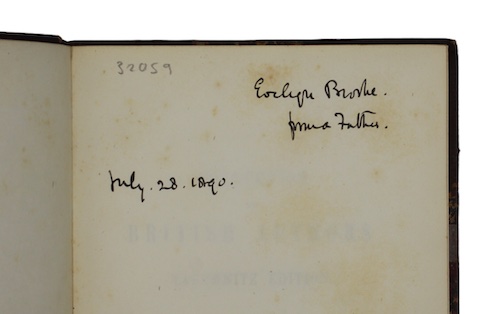 32059
Evelyn Brooke.
from a Father.
July. 28. 1890.